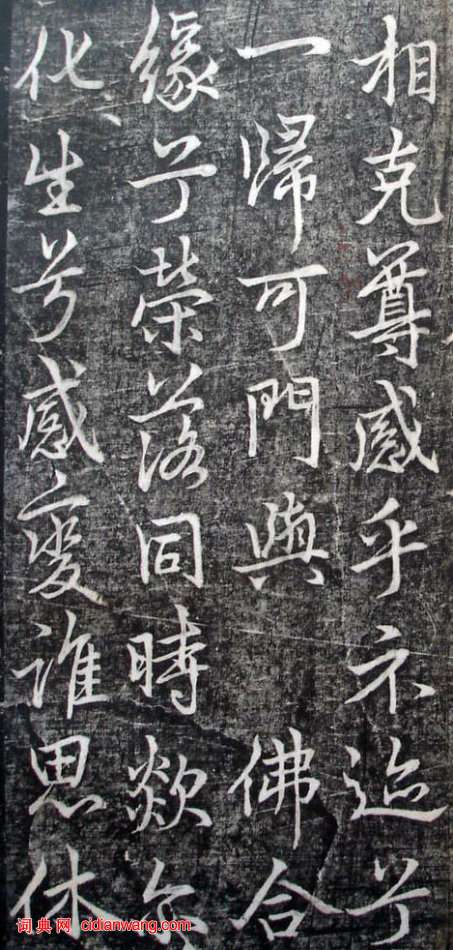 相克尊感乎示迹兮
一歸可門與 佛合
緣兮榮落同時歘尒
化生兮感變誰思休
词典网 cidianwang.com